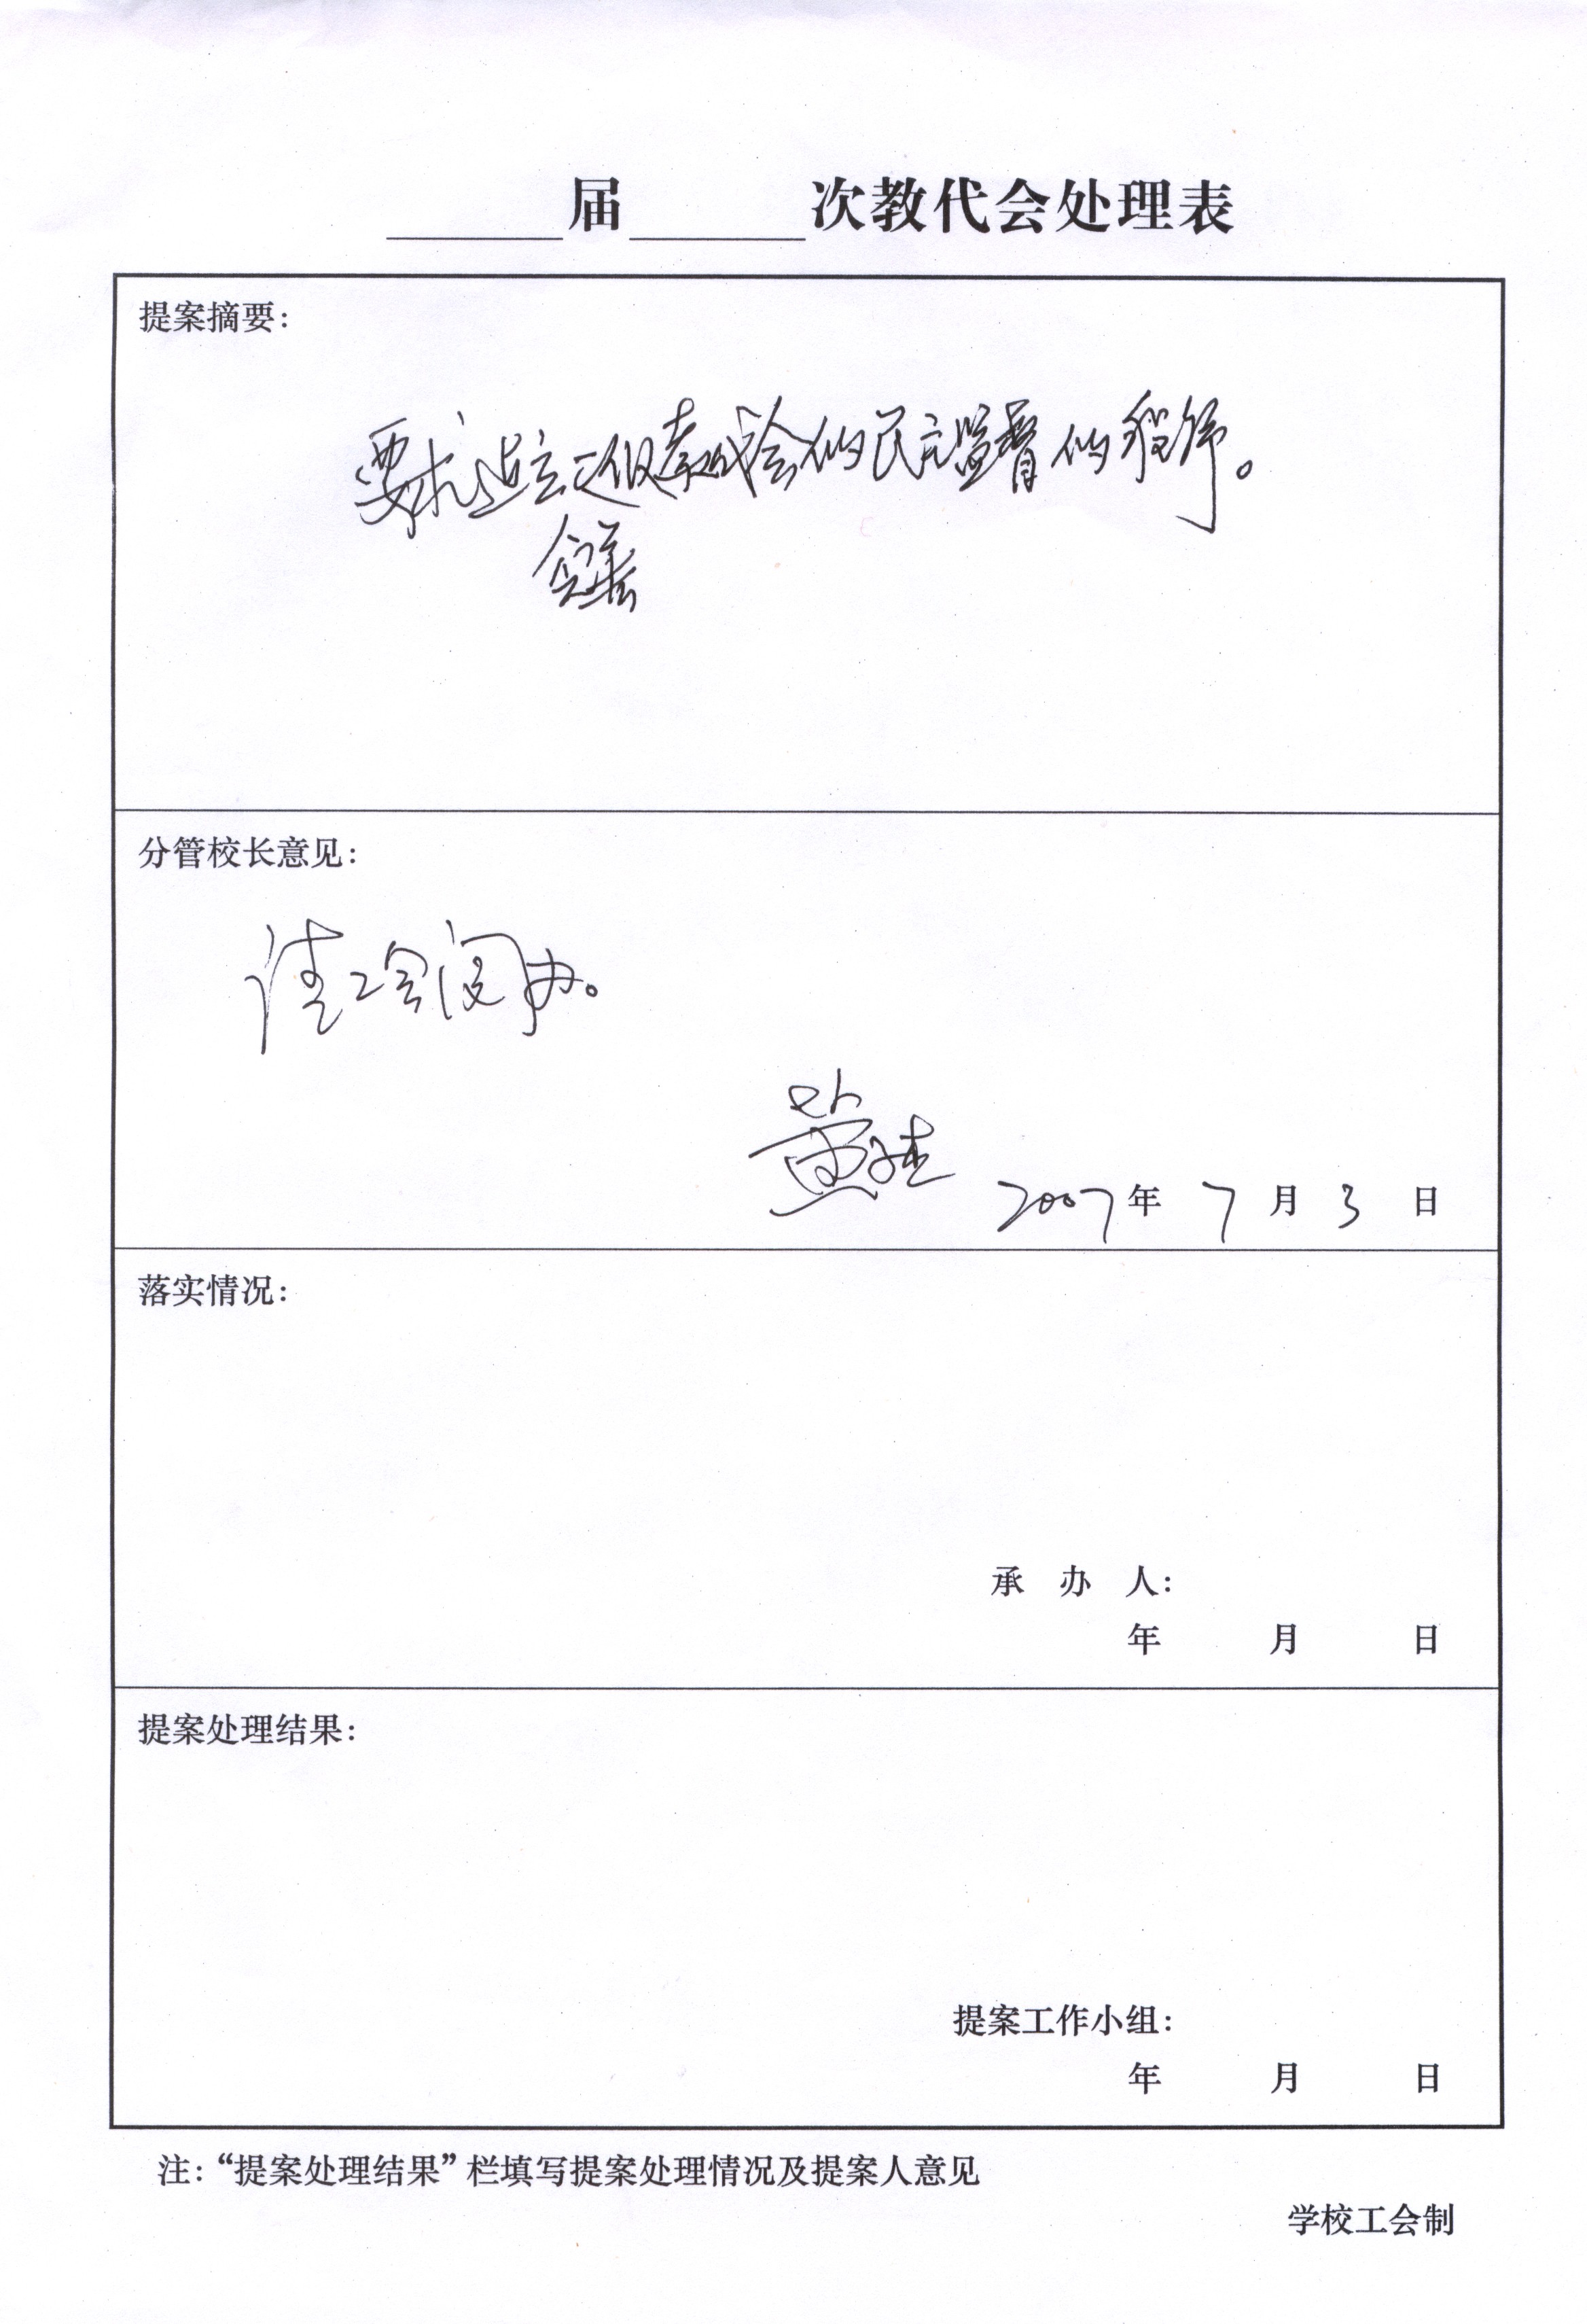 届 次教代会处理表
提案摘要：
要求建立教代会的民主监督的程序。
分管校长意见：
请工会阅办。
黄 2007年 7 月 3 日
落实情况：
承 办 人：
年 月 日
提案处理结果：
提案工作小组：
年 月 日
注：“提案处理结果”栏填写提案处理情况及提案人意见
学校工会制